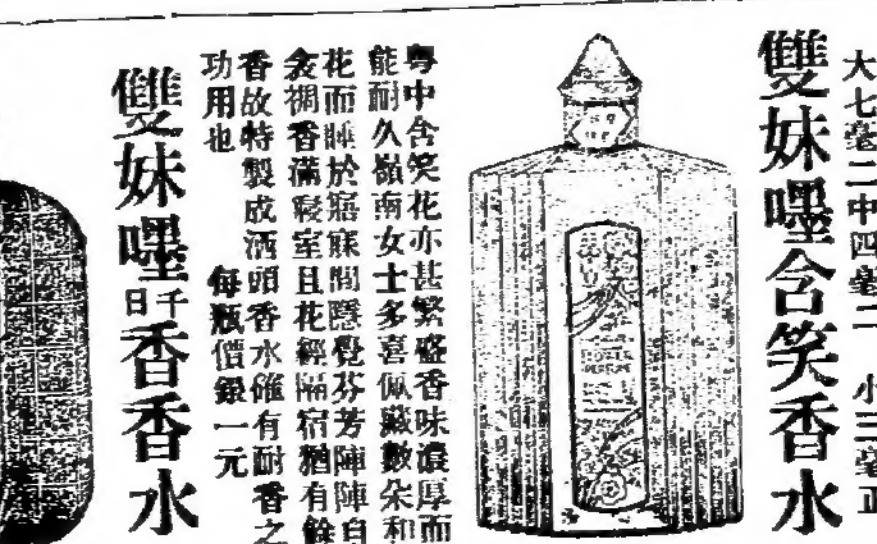 大七毫二中四毫二 小三毫正
雙妹嚜含笑香水
粵中含笑花亦甚繁盛香味濃厚而
能耐久嶺南女士多喜佩藏數朵和
花而睡於寤寐間隱覺芬芳陣陣自
衾裯香滿寢室且花經隔宿猶有餘
香故特製成洒頭香水確有耐香之
功用也 每瓶價銀一元
雙妹嚜千日香香水